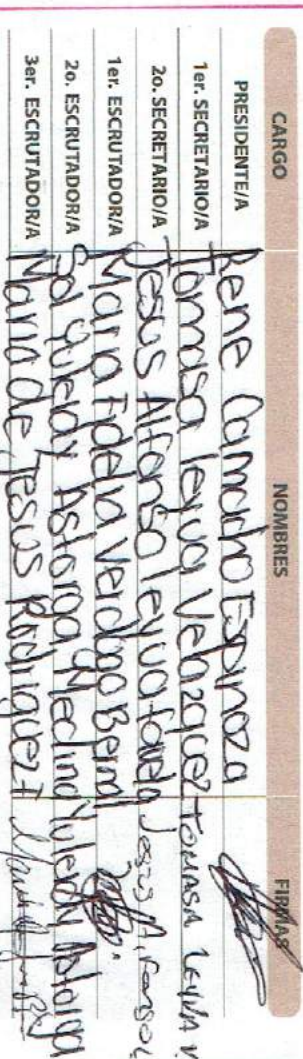 CARGO NOMBRES FIRMAS
PRESIDENTE/A Rene Camacho Espinoza
1er. SECRETARIO/A Tomasa leyva Velazquez TOMASA LEYVA V
2o. SECRETARIO/A Jesus Alfonso leyva favela Jesus A.
1er. ESCRUTADOR/A Maria Fidelia Verdugo Bernal
2o. ESCRUTADOR/A Sol Yuleidy Astorga Medina Yuleidy Astorga
3er. ESCRUTADOR/A Maria de Jesus Rodriguez F